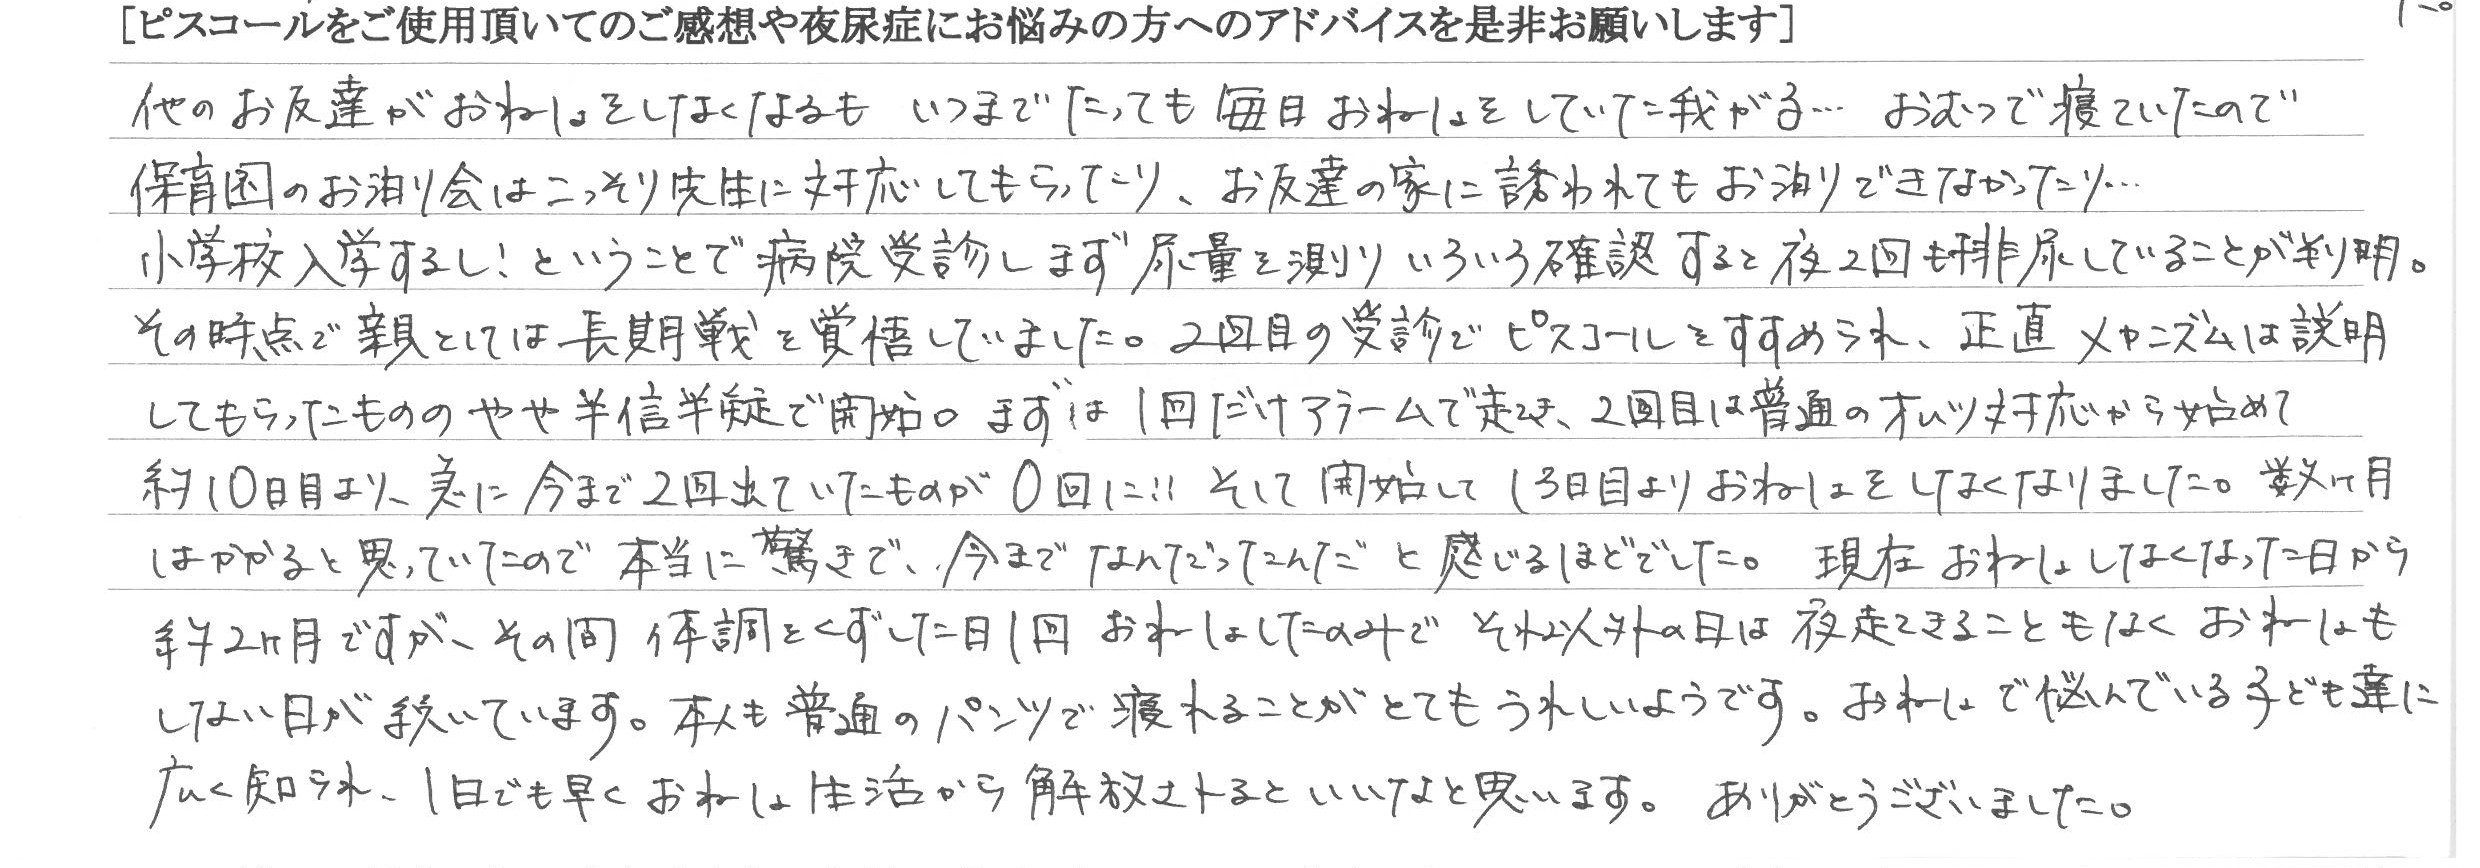 [ピスコールをご使用頂いてのご感想や夜尿症にお悩みの方へのアドバイスを是非お願いします]
他のお友達がおねしょをしなくなるも いつまでたっても毎日おねしょをしていた我が子… おむつで寝ていたので
保育園のお泊り会はこっそり先生に対応してもらったり、お友達の家に誘われてもお泊りできなかったり…
小学校入学するし!ということで病院受診しまず尿量を測りいろいろ確認すると夜2回も排尿していることが判明。
その時点で親としては長期戦を覚悟していました。2回目の受診でピスコールをすすめられ、正直メカニズムは説明
してもらったもののやや半信半疑で開始。まずは1回だけアラームで起き、2回目は普通のオムツ対応から始めて
約10日目より、急に今まで2回出ていたものが0回に!! そして開始して13日目よりおねしょをしなくなりました。数ヶ月
はかかると思っていたので本当に驚きで、今までなんだったんだと感じるほどでした。 現在おねしょしなくなった日から
約2ヶ月ですが、その間体調をくずした日1回おねしょしたのみでそれ以外の日は夜起きることもなくおねしょも
しない日が続いています。本人も普通のパンツで寝れることがとてもうれしいようです。おねしょで悩んでいる子ども達に
広く知られ、1日でも早くおねしょ生活から解放されるといいなと思います。 ありがとうございました。